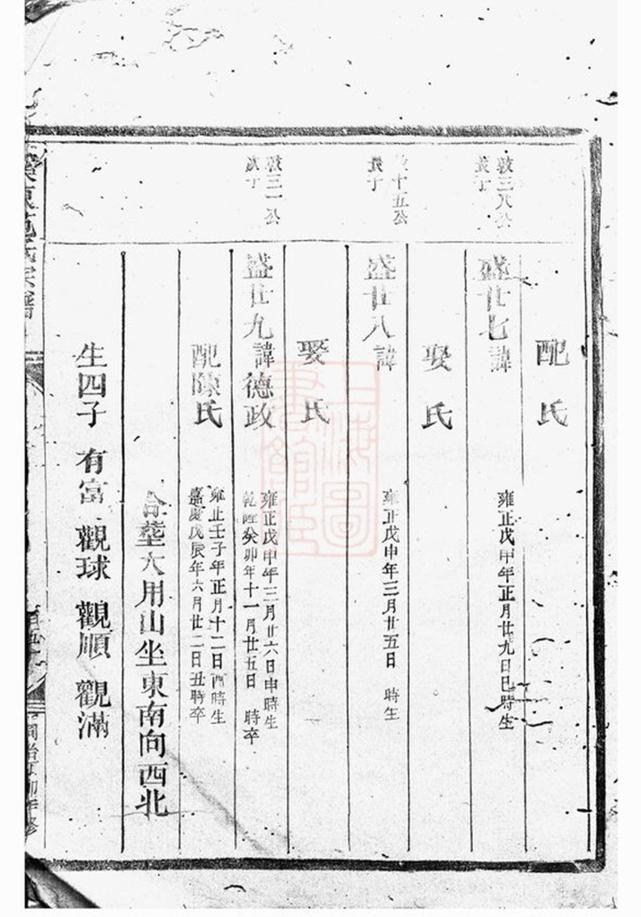 配　氏
敦三八公
盛廿七諱
雍正戊申年正月廿九日巳時生
娶　氏
十五公
盛廿八諱
雍正戊申年三月廿五日　時生
娶　氏
敦三一公
盛廿九諱德政
雍正戊申年三月廿六日申時生
乾隆癸卯年十一月廿五日　時卒
配陳氏
雍正壬子年正月十二日酉時生
嘉慶戊辰年六月廿二日丑時卒
合葬大用山坐東南向西北
生四子　有富　觀球　觀順　觀滿
氏宗譜
上海圖書館藏